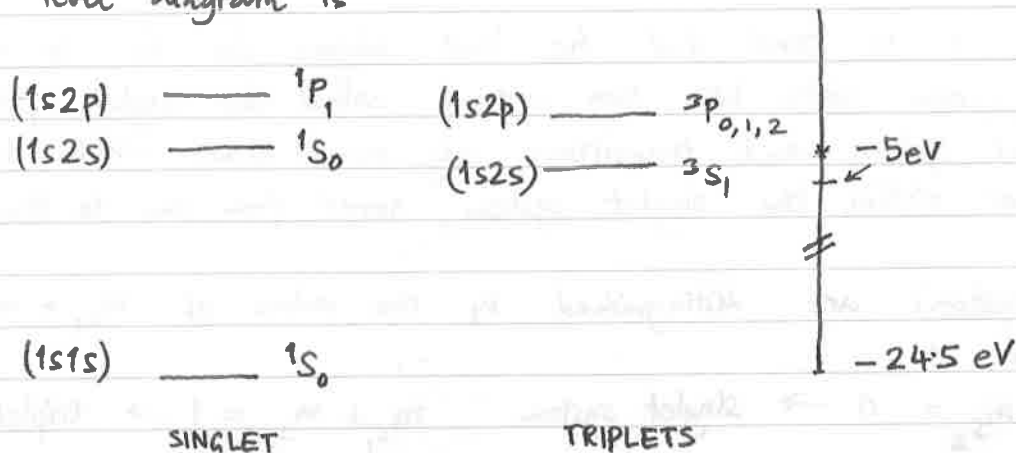 level diagram is
(1s2p) ¹P₁ (1s2p) ³P₀,₁,₂
(1s2s) ¹S₀ (1s2s) ³S₁ -5eV
(1s1s) ¹S₀ -24.5 eV
SINGLET TRIPLETS